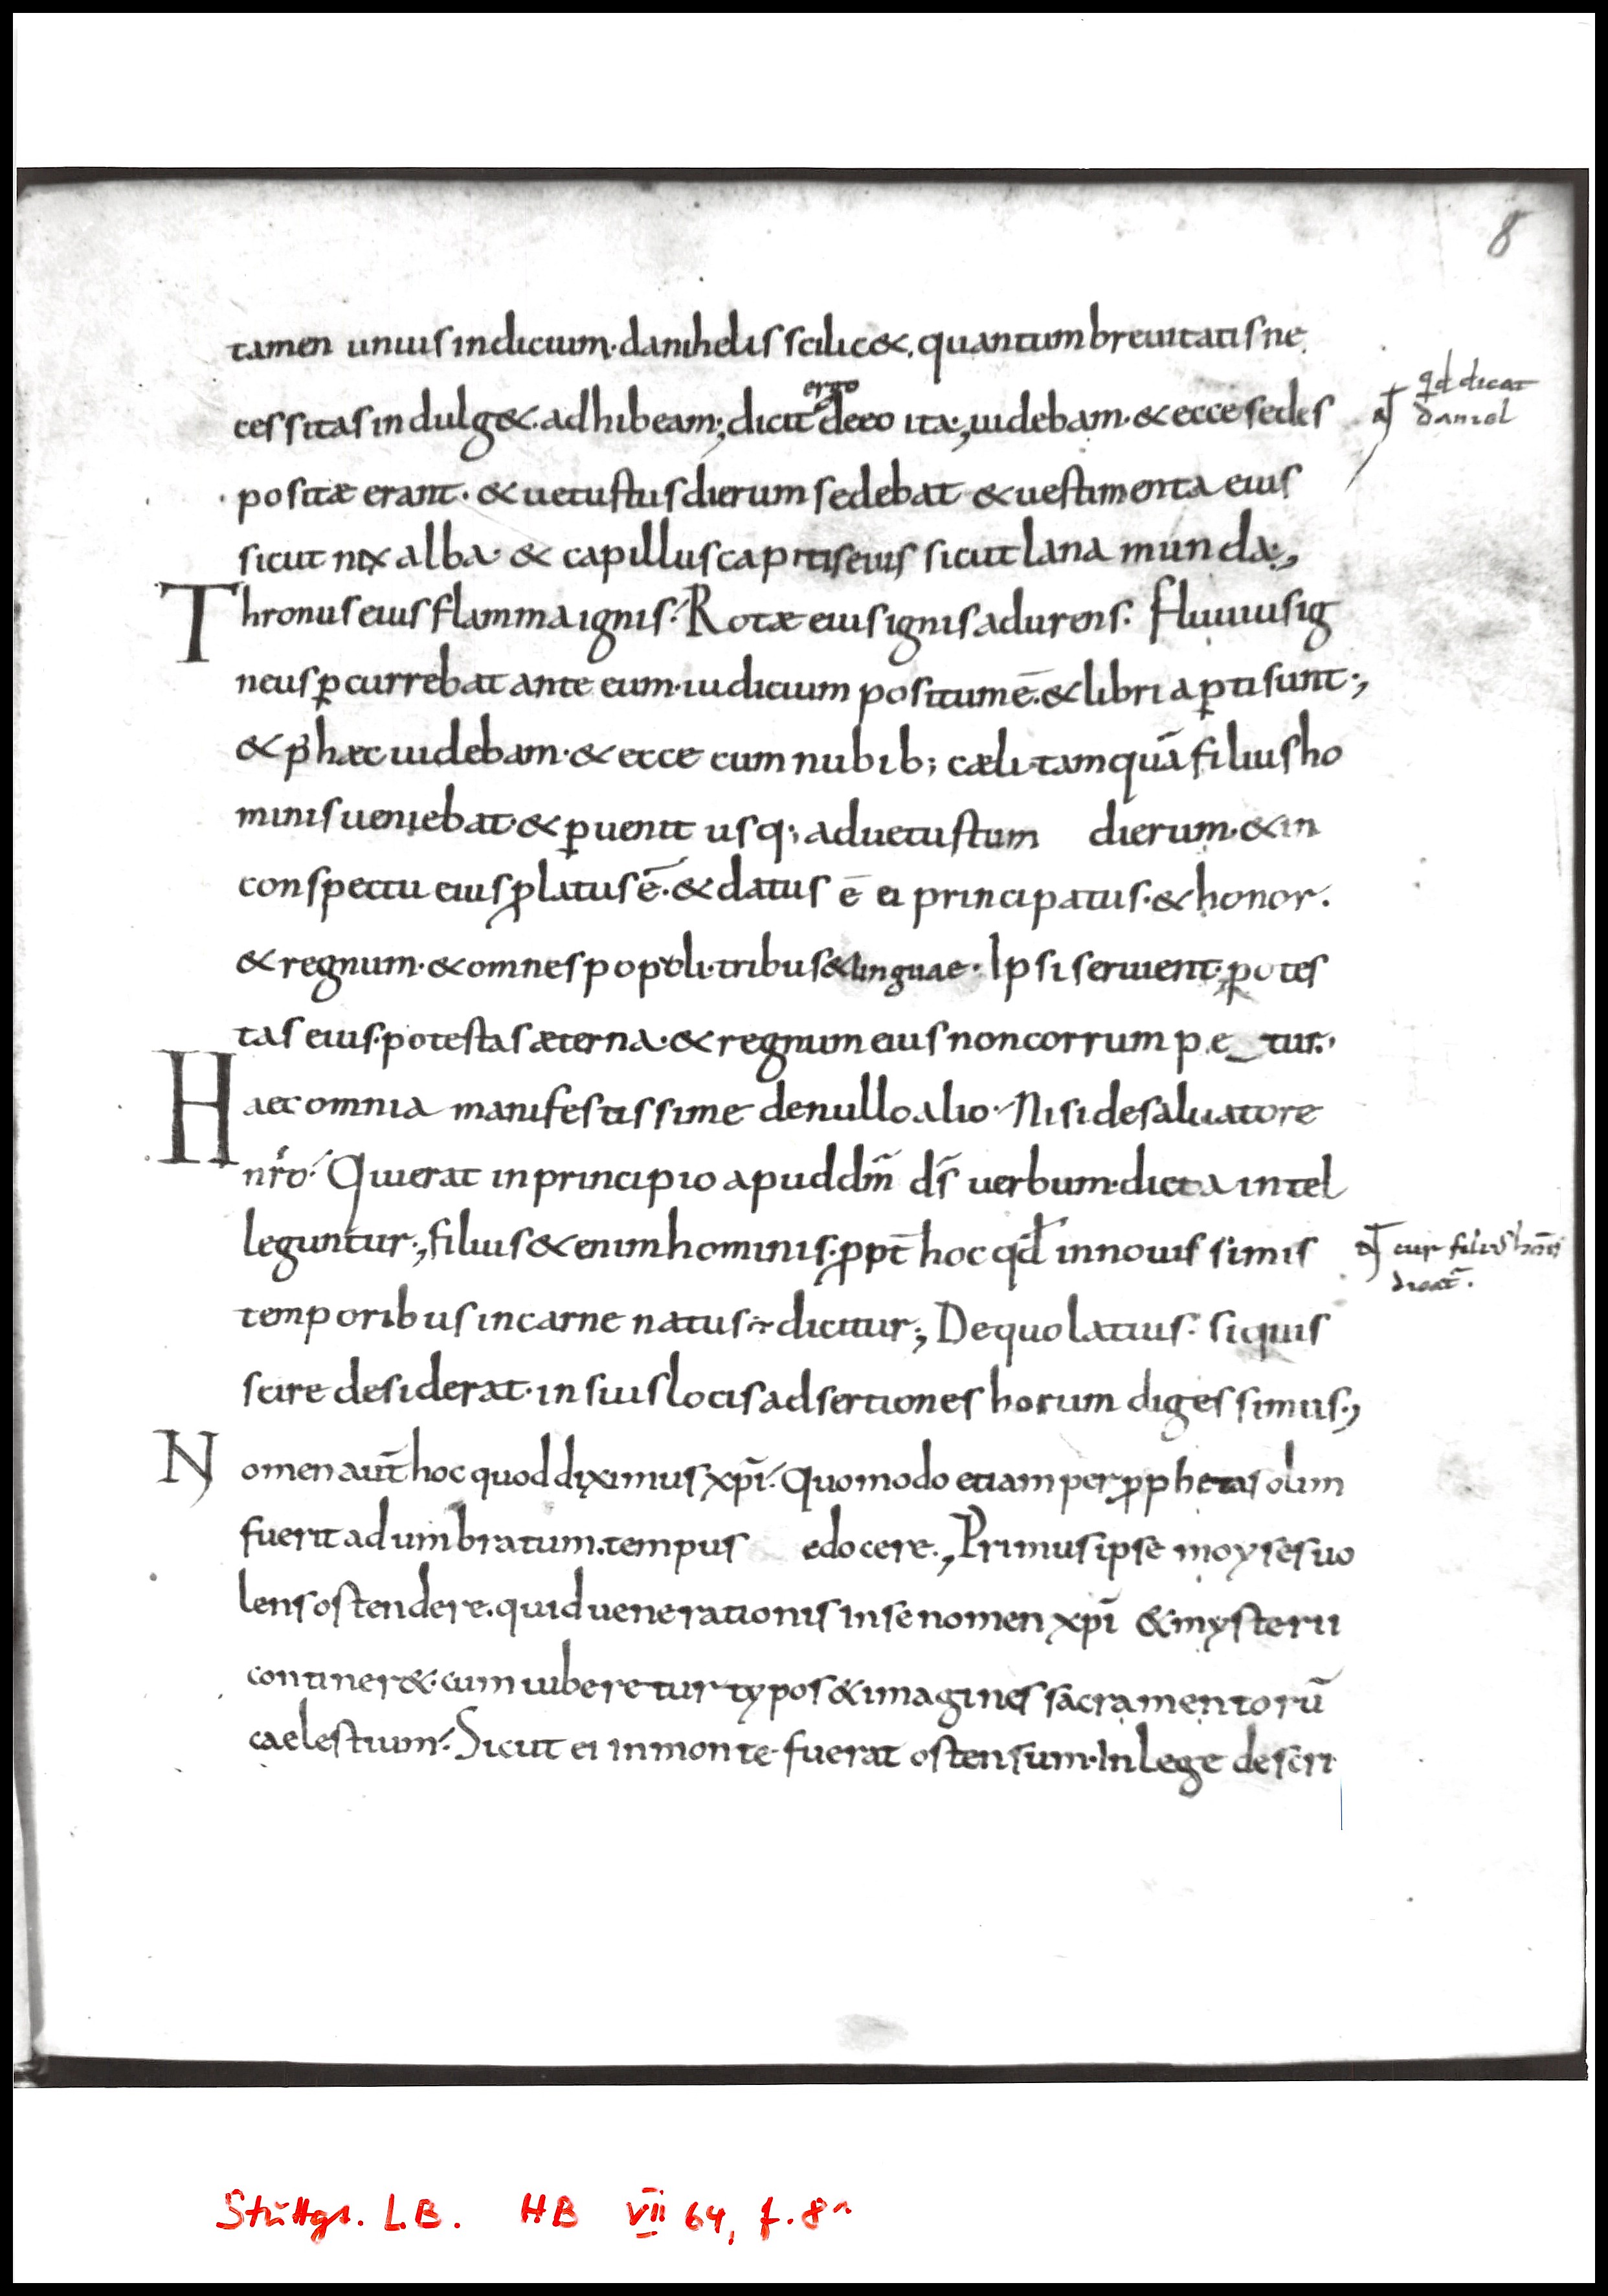 8
tamen unius indicium· danihelis scilic&. quantum breuitatis ne
cessitas indulg&. adhibeam; dicit ergo de eo ita; uidebam· & ecce sedes
qd dicat
daniel
positæ erant· & uetustus dierum sedebat & uestimenta eius
sicut nix alba· & capillus capitis eius sicut lana munda;
Thronus eius flamma ignis· Rotæ eius ignis adurens· fluuius ig
neus ꝑcurrebat ante eum· iudicium positum ē· & libri aꝑti sunt·,
& p̄ haec uidebam· & ecce cum nubib; cæli tamquā filius ho
minis ueniebat· & ꝑuenit usq; ad uetustum dierum· & in
conspectu eius ꝓlatus ē· & datus ē ei principatus· & honor·
& regnum· & omnes popoli· tribus & linguae· Ipsi seruient· potes
tas eius· potestas æterna· & regnum eius non corrumpetur·
Haec omnia manifestissime de nullo alio· Nisi de saluatore
nr̄o· Qui erat in principio apud dm̄ ds̄ uerbum· dicta intel
leguntur·, filius & enim hominis· ꝓpt̄ hoc qđ in nouissimis
cur filius hōis
dicat̄.
temporibus in carne natus dicitur; De quo latius· si quis
scire desiderat· in suis locis adsertiones horum digessimus·,
Nomen aūt hoc quod diximus xp̄i· Quomodo etiam per ꝓphetas olim
fuerit adumbratum· tempus edocere·, Primus ipse moyses uo
lens ostendere· quid uenerationis in se nomen xp̄i & mysterii
continer&· cum iuberetur typos & imagines sacramentorū
caelestium· Sicut ei in monte fuerat ostensum· In lege descri
Stuttgt. L.B. HB VII 64, f. 8r